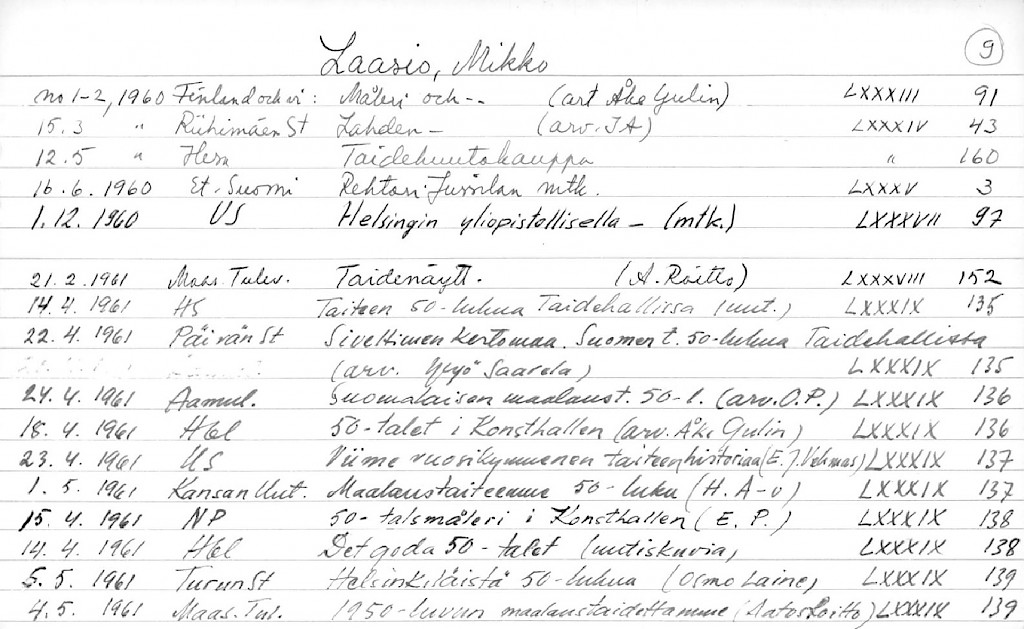 Laasio, Mikko 9
no 1-2, 1960 Finland och vi : Måleri och -- (art Åke Gulin) LXXXIII 91
15.3 " Riihimäen St Lahden - (arv. IA) LXXXIV 43
12.5 " Hem Taidehuutokauppa " 160
16.6.1960 Et.-Suomi Rehtori Jurvilan mtk. LXXXV 3
1.12.1960 US Helsingin yliopistollisella - (mtk.) LXXXVII 97
21.2.1961 Maas. Tulev. Taidenäytt. (A. Roitto) LXXXVIII 152
14.4.1961 HS Taiteen 50-lukua Taidehallissa (uut.) LXXXIX 135
22.4.1961 Päivän St Siveltimen kertomaa. Suomen t. 50-lukua Taidehallissa
(arv. Yrjö Saarela) LXXXIX 135
24.4.1961 Aamul. Suomalaisen maalaust. 50-l. (arv. O.P.) LXXXIX 136
18.4.1961 Hbl 50-talet i Konsthallen (arv. Åke Gulin) LXXXIX 136
23.4.1961 US Viime vuosikymmenen taiteenhistoriaa (E.J. Vehmas) LXXXIX 137
1.5.1961 Kansan Uut. Maalaustaiteemme 50-luku (H. A-v) LXXXIX 137
15.4.1961 NP 50-talsmåleri i Konsthallen (E.P.) LXXXIX 138
14.4.1961 Hbl Det goda 50-talet (uutiskuvia) LXXXIX 138
5.5.1961 Turun St Helsinkiläistä 50-lukua (Osmo Laine) LXXXIX 139
4.5.1961 Maas. Tul. 1950-luvun maalaustaidettamme (Aatos Roitto) LXXXIX 139